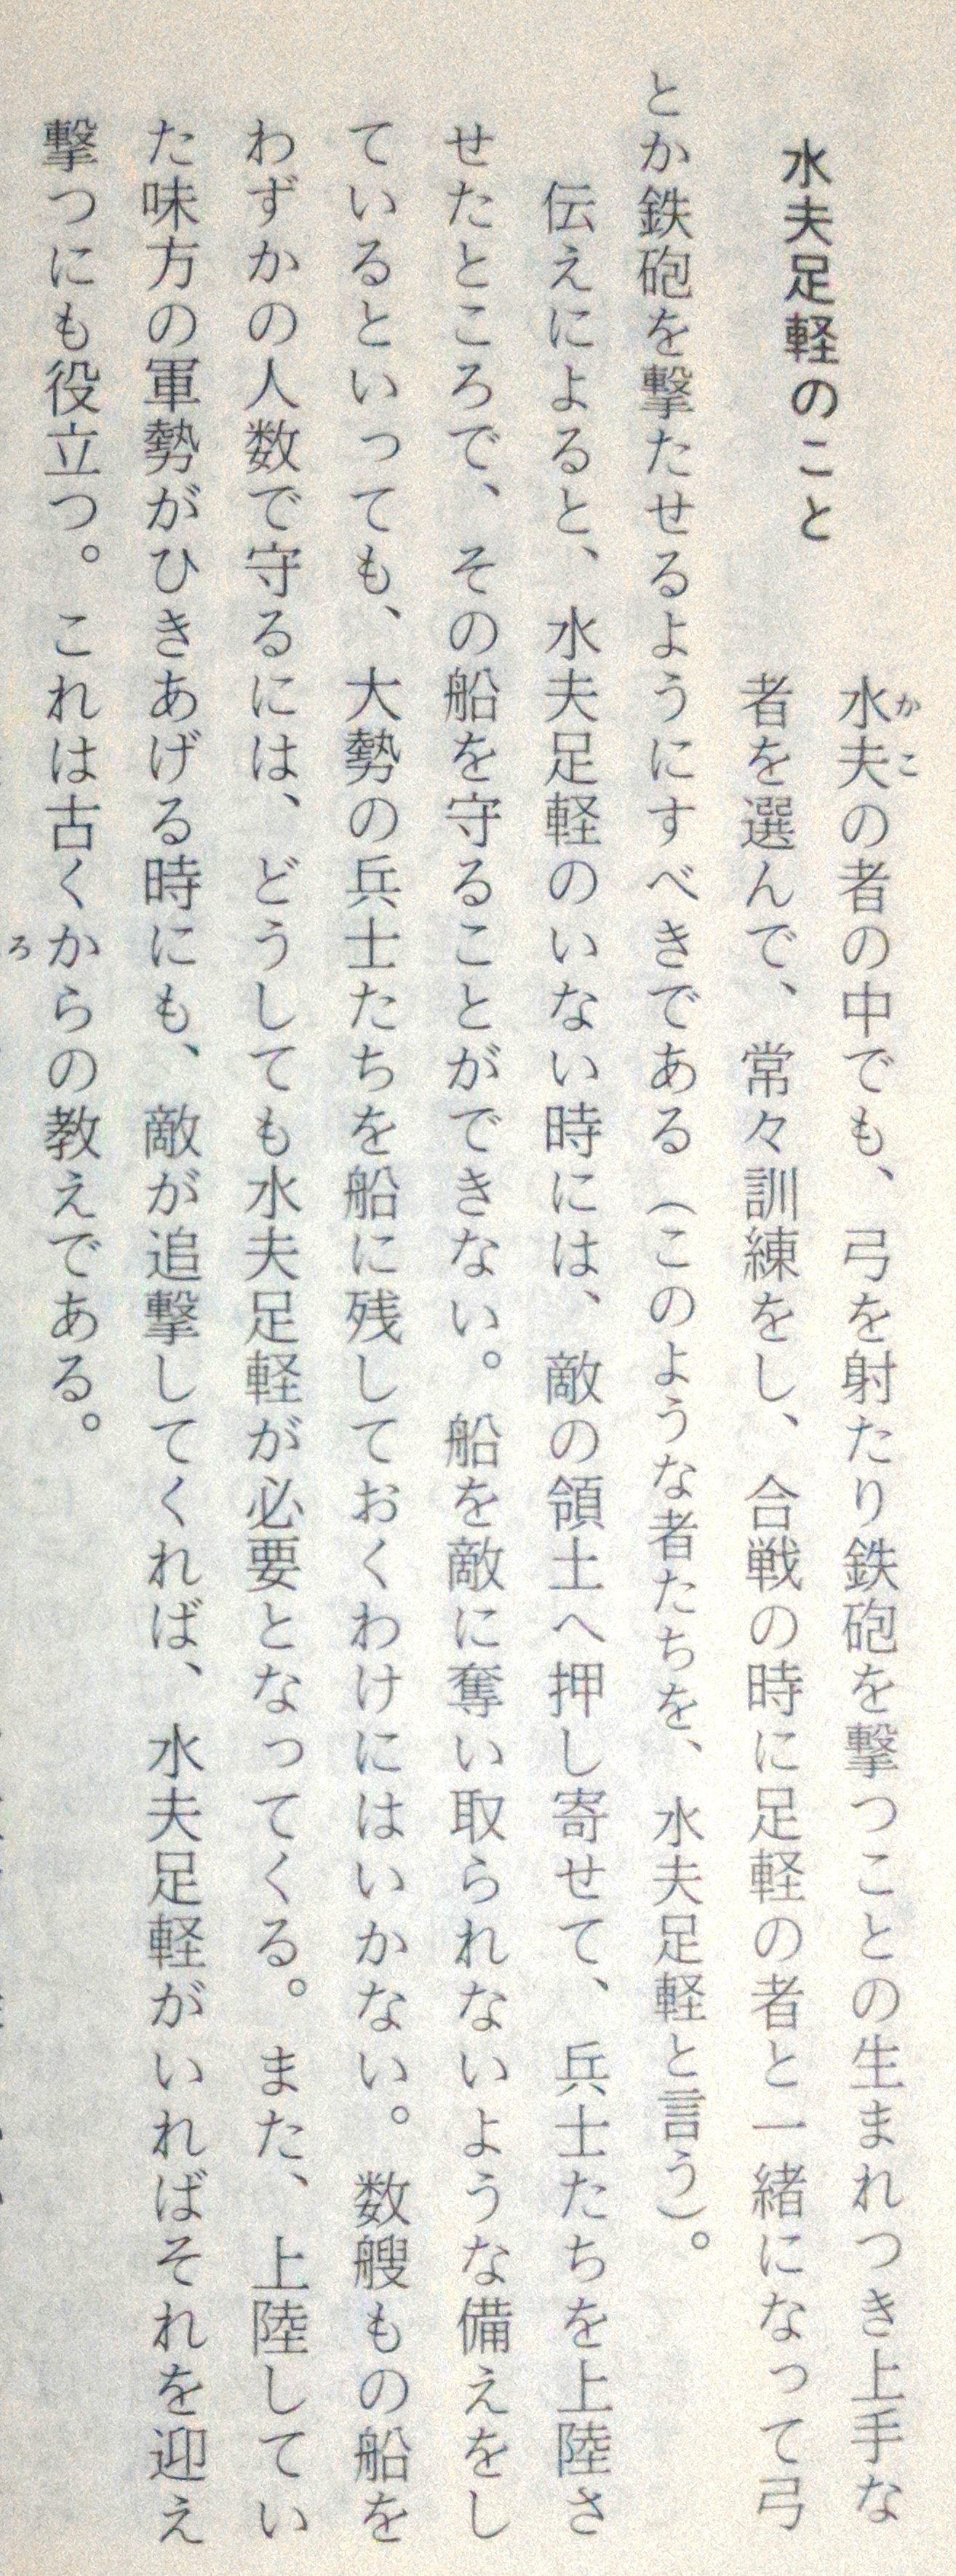 水夫足軽のこと
水夫の者の中でも、弓を射たり鉄砲を撃つことの生まれつき上手な
者を選んで、常々訓練をし、合戦の時に足軽の者と一緒になって弓
とか鉄砲を撃たせるようにすべきである（このような者たちを、水夫足軽と言う）。
伝えによると、水夫足軽のいない時には、敵の領土へ押し寄せて、兵士たちを上陸さ
せたところで、その船を守ることができない。船を敵に奪い取られないような備えをし
ているといっても、大勢の兵士たちを船に残しておくわけにはいかない。数艘もの船を
わずかの人数で守るには、どうしても水夫足軽が必要となってくる。また、上陸してい
た味方の軍勢がひきあげる時にも、敵が追撃してくれば、水夫足軽がいればそれを迎え
撃つにも役立つ。これは古くからの教えである。
かこ
ろ